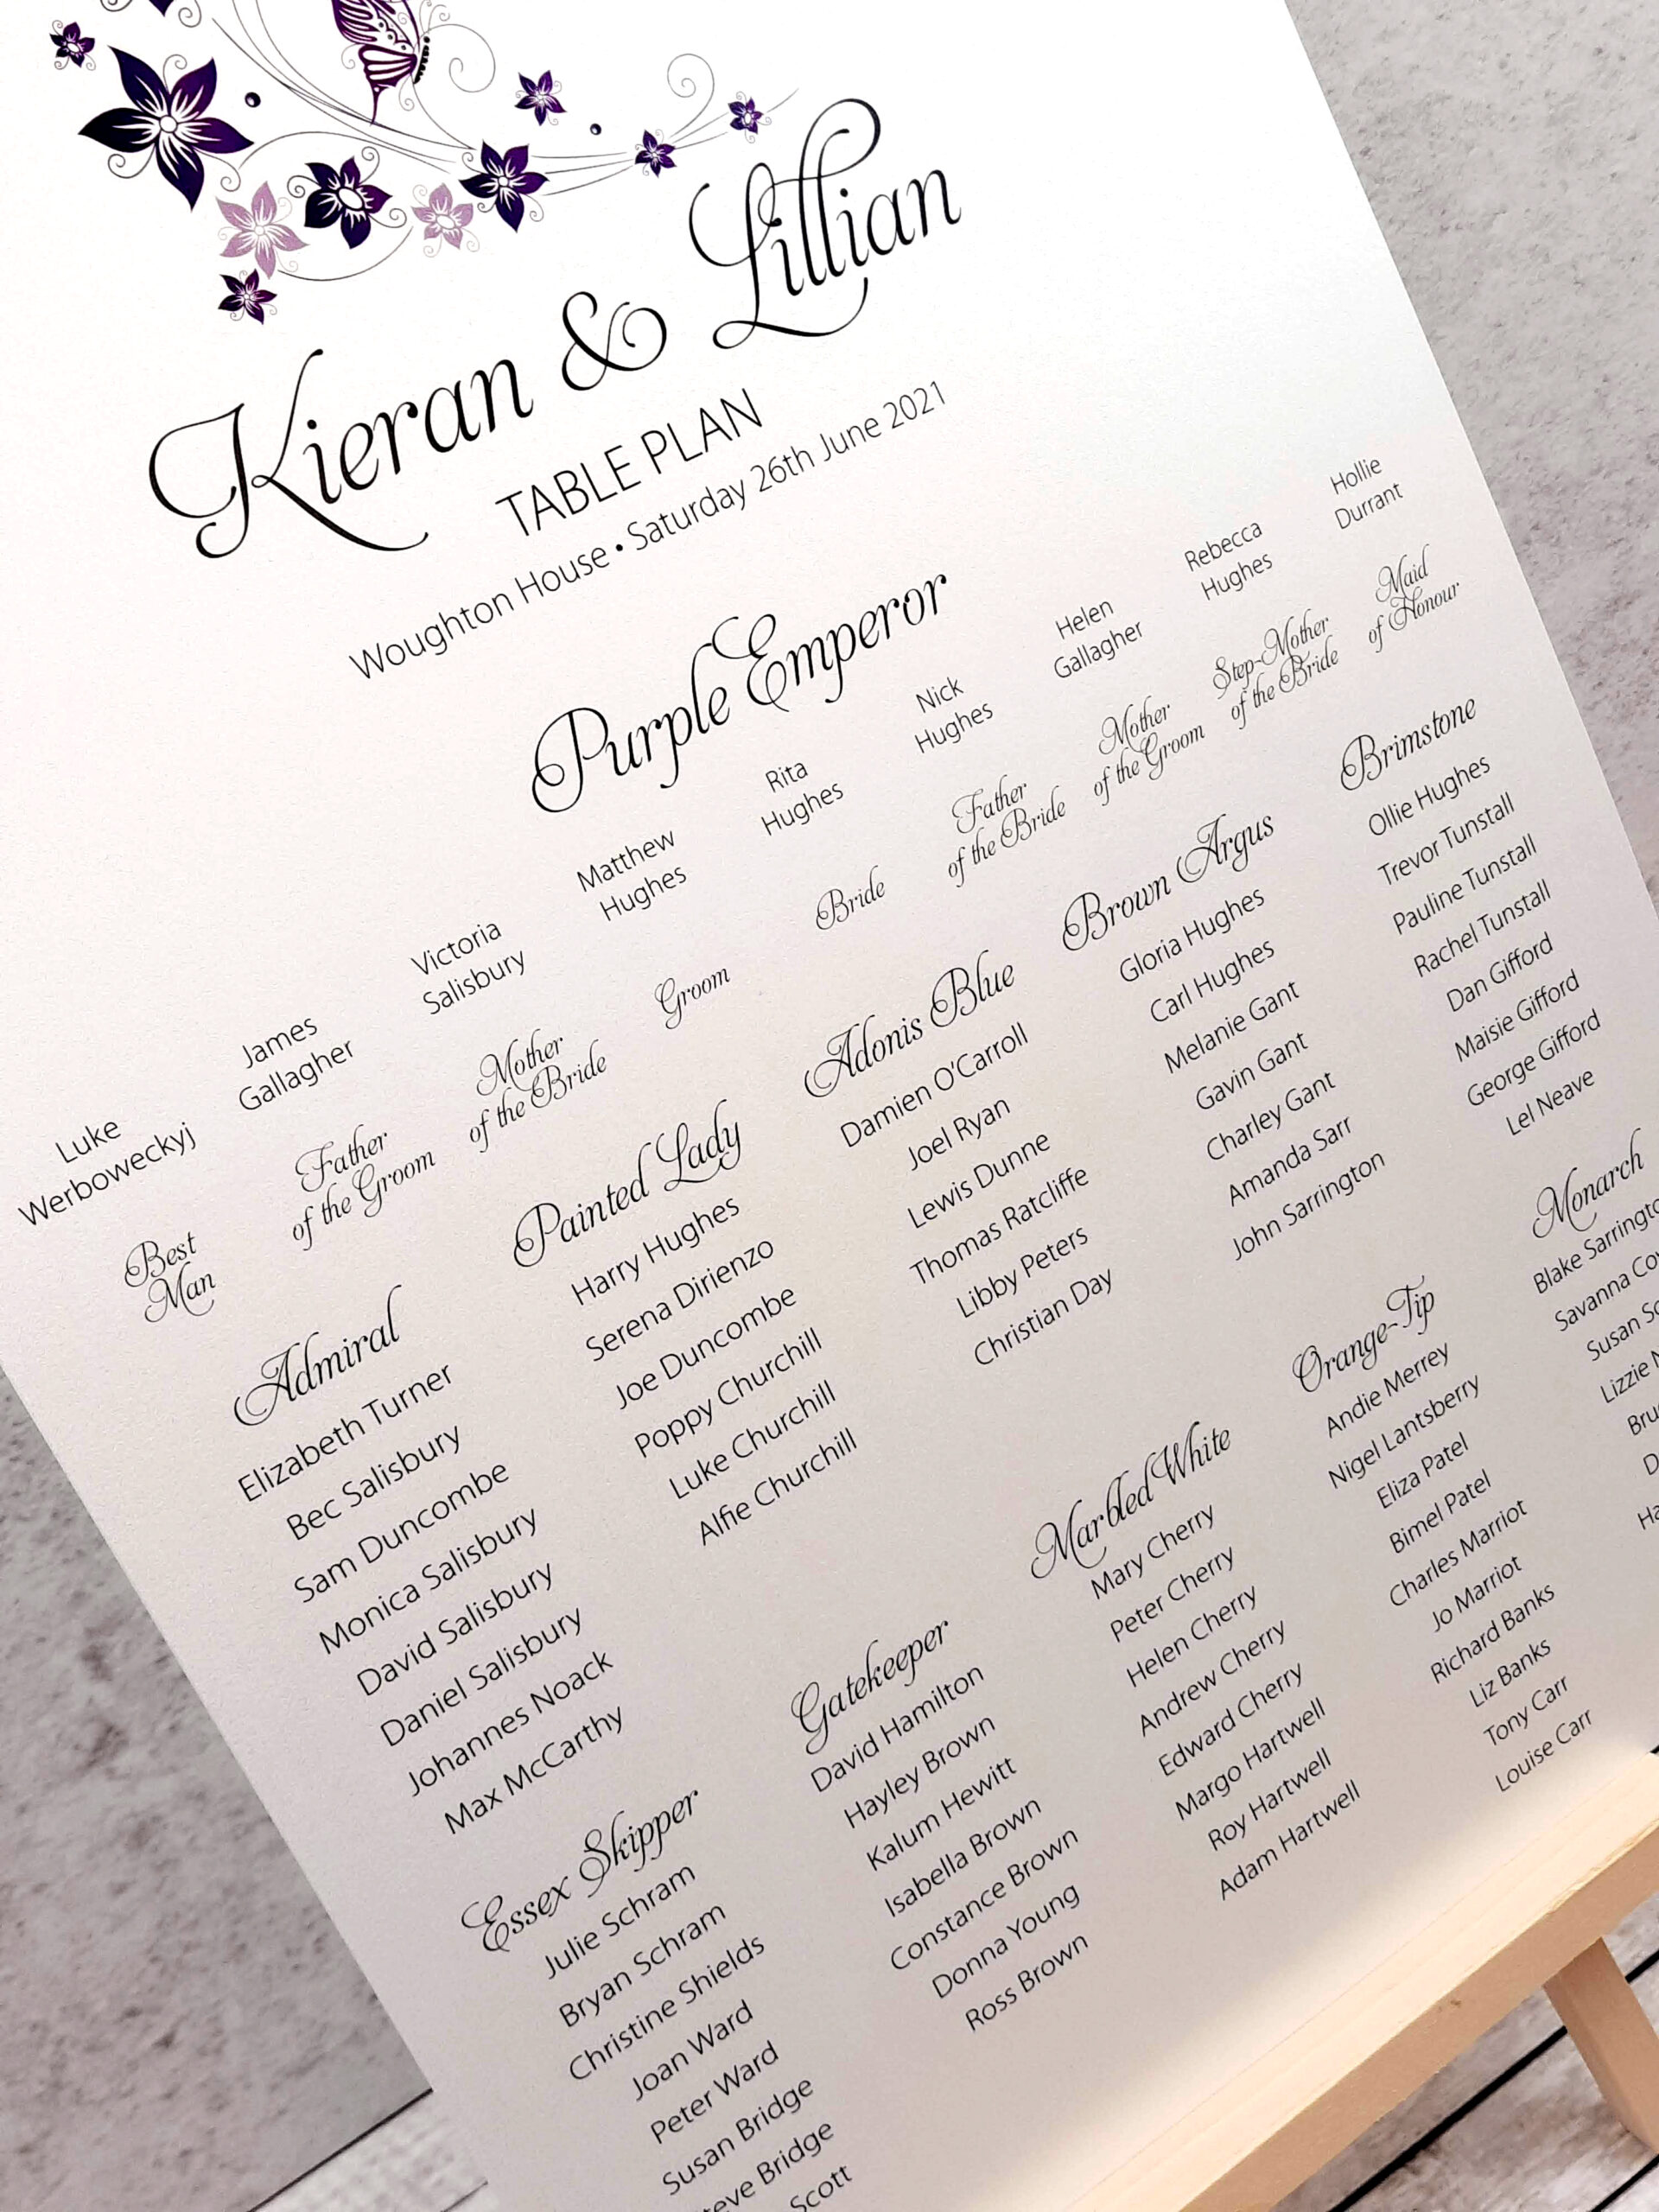 Kieran & Lillian
TABLE PLAN
Woughton House • Saturday 26th June 2021
Purple Emperor
Luke
Werboweckyj
Best
Man
James
Gallagher
Father
of the Groom
Victoria
Salisbury
Mother
of the Bride
Matthew
Hughes
Groom
Rita
Hughes
Bride
Nick
Hughes
Father
of the Bride
Helen
Gallagher
Mother
of the Groom
Rebecca
Hughes
Step-Mother
of the Bride
Hollie
Durrant
Maid
of Honour
Admiral
Elizabeth Turner
Bec Salisbury
Sam Duncombe
Monica Salisbury
David Salisbury
Daniel Salisbury
Johannes Noack
Max McCarthy
Painted Lady
Harry Hughes
Serena Dirienzo
Joe Duncombe
Poppy Churchill
Luke Churchill
Alfie Churchill
Adonis Blue
Damien O'Carroll
Joel Ryan
Lewis Dunne
Thomas Ratcliffe
Libby Peters
Christian Day
Brown Argus
Gloria Hughes
Carl Hughes
Melanie Gant
Gavin Gant
Charley Gant
Amanda Sarr
John Sarrington
Brimstone
Ollie Hughes
Trevor Tunstall
Pauline Tunstall
Rachel Tunstall
Dan Gifford
Maisie Gifford
George Gifford
Lel Neave
Essex Skipper
Julie Schram
Bryan Schram
Christine Shields
Joan Ward
Peter Ward
Susan Bridge
Bridge
Scott
Gatekeeper
David Hamilton
Hayley Brown
Kalum Hewitt
Isabella Brown
Constance Brown
Donna Young
Ross Brown
Marbled White
Mary Cherry
Peter Cherry
Helen Cherry
Andrew Cherry
Edward Cherry
Margo Hartwell
Roy Hartwell
Adam Hartwell
Orange-Tip
Andie Merrey
Nigel Lantsberry
Eliza Patel
Bimel Patel
Charles Marriot
Jo Marriot
Richard Banks
Liz Banks
Tony Carr
Louise Carr
Monarch
Blake
Savanna
Susan
Lizzie